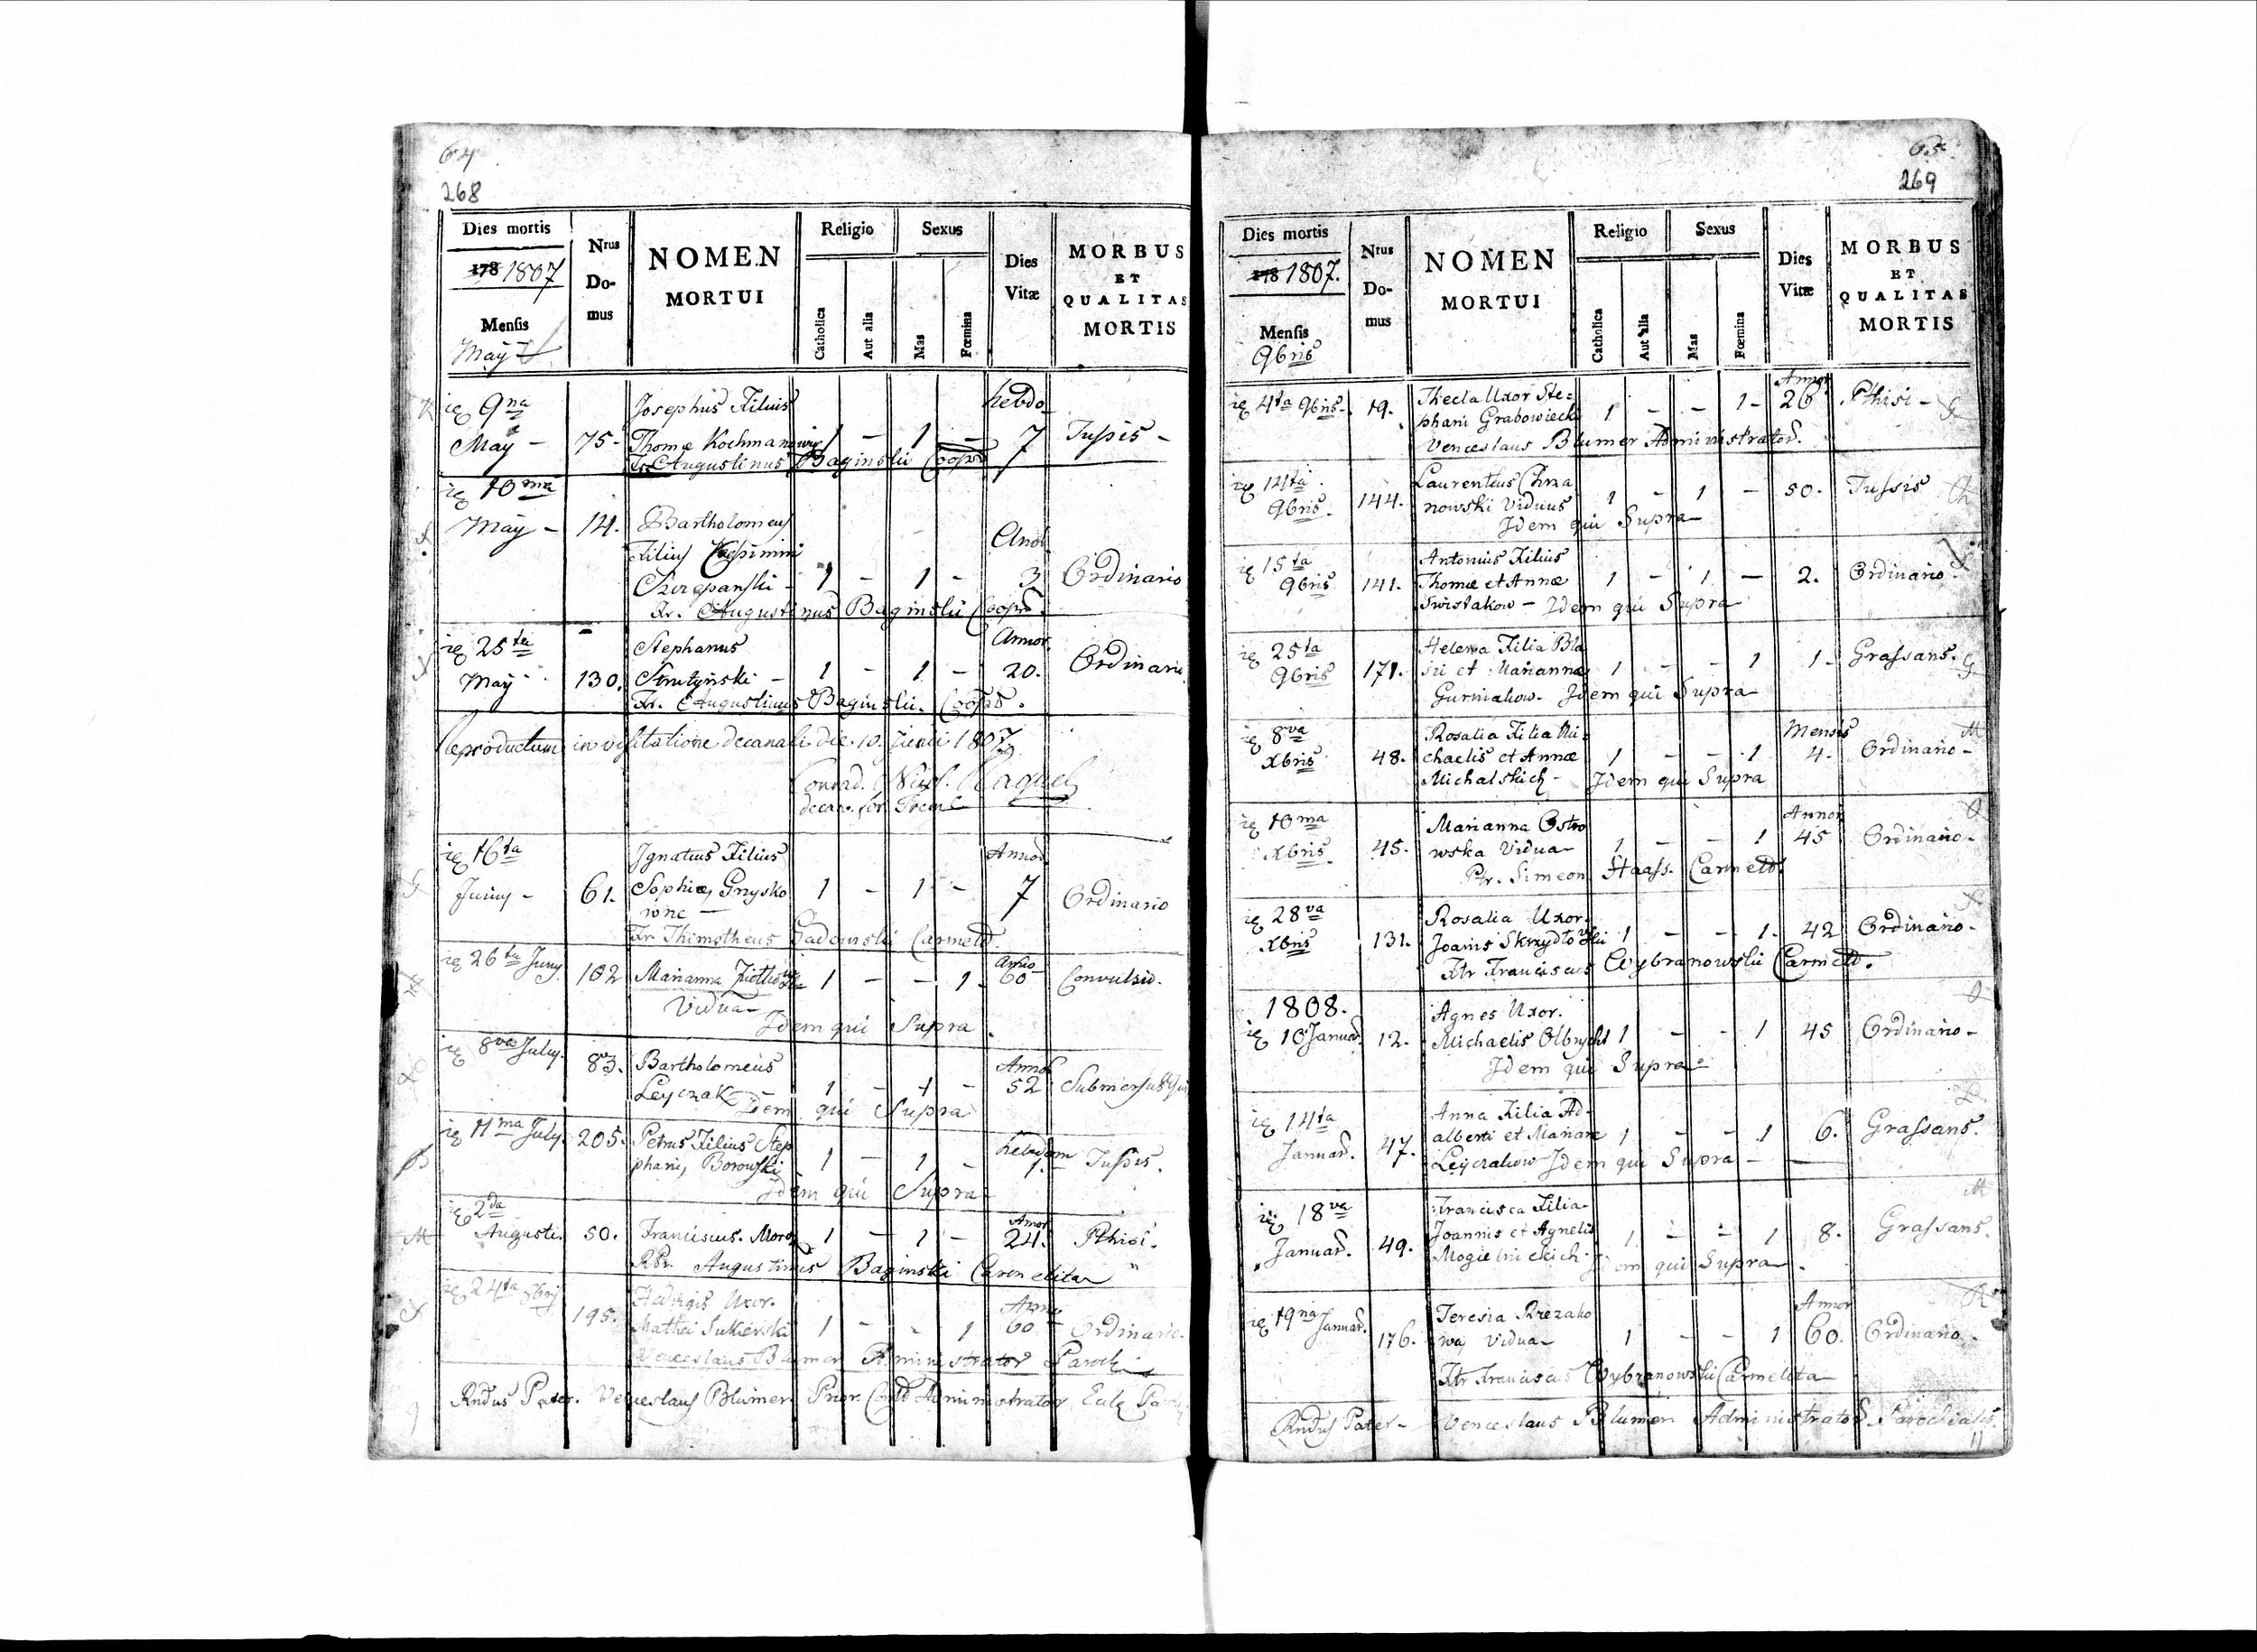 64
268
Dies mortis
178 1807
Mensis
May
Nrus
Do-
mus
NOMEN
MORTUI
Religio
Catholica
Aut alia
Sexus
Mas
Fœmina
Dies
Vitæ
MORBUS
ET
QUALITAS
MORTIS
9na
May - 75. Josephus Filius hebdo
Thomæ Kochmanowicz 1 - 1 - 7 Tussis -
Fr. Augustinus Baginski Coopr
10ma
May - 14. Bartholomeus
Filius Anor
Szczepanski - 1 - 1 - 3 Ordinario
Fr. Augustinus Baginski Coopr.
25ta Stephanus Annor.
May 130. Strutyński - 1 - 1 - 20. Ordinario
Fr. Augustinus Baginski. Coopr.
Productum in visitatione decanali die 10. Junii 1807
16ta Ignatius Filius Annor
Juny - 61. Sophiæ, Grzysko 1 - 1 - 7 Ordinario
wne -
Fr. Thimotheus Sadowski Carmelt.
26ta Juny 102 Marianna 1 - - 1. Anno 60 Convulsio.
Vidua
Idem qui Supra
8va July. 83. Bartholomeus Annor
Leyczak 1 - 1 - 52 Submersus
Idem qui Supra
11ma July. 205. Petrus Filius Step hebdom
phani, Borowski 1 - 1 - 1. Tussis.
Idem qui Supra
2da Annor
Augusti. 50. Franciscus. Moroz 1 - 1 - 24. Pthisi.
RPr. Augustinus Baginski Carmelita
24ta Hedvigis Uxor. Anno
195. Mathei Sukienski 1 - - 1 60 Ordinario.
Venceslaus Blumer Administrator Paroch
Rndus Pater. Venceslaus Blumer Prior Administrator
65
269
Dies mortis
178 1807.
Mensis
9bris
Nrus
Do-
mus
NOMEN
MORTUI
Religio
Catholica
Aut alia
Sexus
Mas
Fœmina
Dies
Vitæ
MORBUS
ET
QUALITAS
MORTIS
4ta 9bris. 19. Thecla Uxor Ste= Annor
phani Grabowiecki 1 - - 1 - 26 Pthisi - G
Venceslaus Blumer Administrator.
14ta Laurentius Chrza
9bris. 144. nowski Viduus 1 - 1 - 50. Tussis Ch
Idem qui Supra
15ta Antonius Filius
9bris 141. Thomæ et Annæ 1 - 1 - 2. Ordinario.
Swistakow - Idem qui Supra
25ta Helena Filia Bla
9bris 171. sii et Mariannæ 1 - - 1 1 - Grassans. G
Gurniakow. Idem qui Supra
8va Rosalia Filia Mi= Mensis M
Xbris 48. chaelis et Annæ 1 - - 1 4. Ordinario -
Michalskich - Idem qui Supra
10ma Marianna Ostro Annor O
Xbris 45. wska Vidua 1 - - 1 45 Ordinario -
Pr. Simeon Haass. Carmelt.
28va Rosalia Uxor.
Xbris 131. Joanis Skrzydłowski 1 - - 1. 42 Ordinario -
Ftr Franciscus Wybranowski Carmelt.
1808. Agnes Uxor. O
10 Januar. 12. Michaelis Olbrycht 1 - - 1 45 Ordinario -
Idem qui Supra
14ta Anna Filia Ad= L
Januar. 47. alberti et Marian 1 - - 1 6. Grassans.
Leyczakow Idem qui Supra -
18va Francisca Filia M
Januar. 49. Joannis et Agnetis 1 - - 1 8. Grassans.
Mogielnickich - Idem qui Supra.
19na Januar. Teresia Rzezako Annor R
176. wa, Vidua 1 - - 1 60. Ordinario.
Ftr Franciscus Wybranowski Carmelita
Rndus Pater - Venceslaus Blumer Administrator Parochialis.